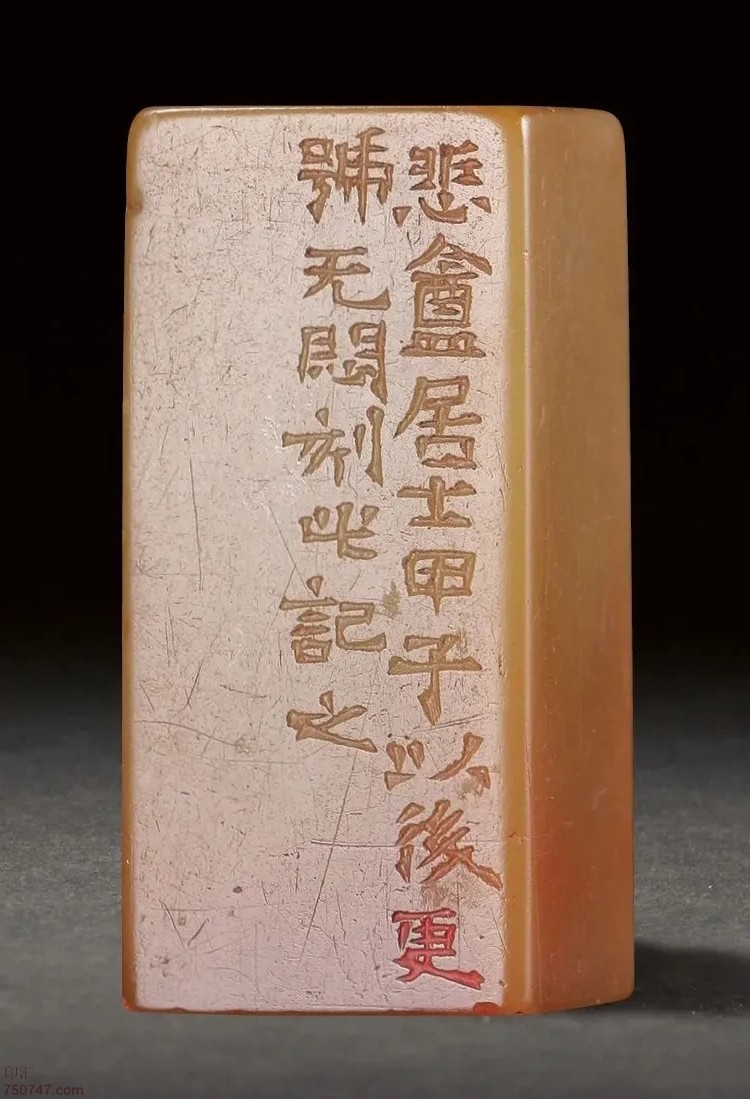 悲盦居士甲子以後更
號无悶刻此記之
印汇
750747.com